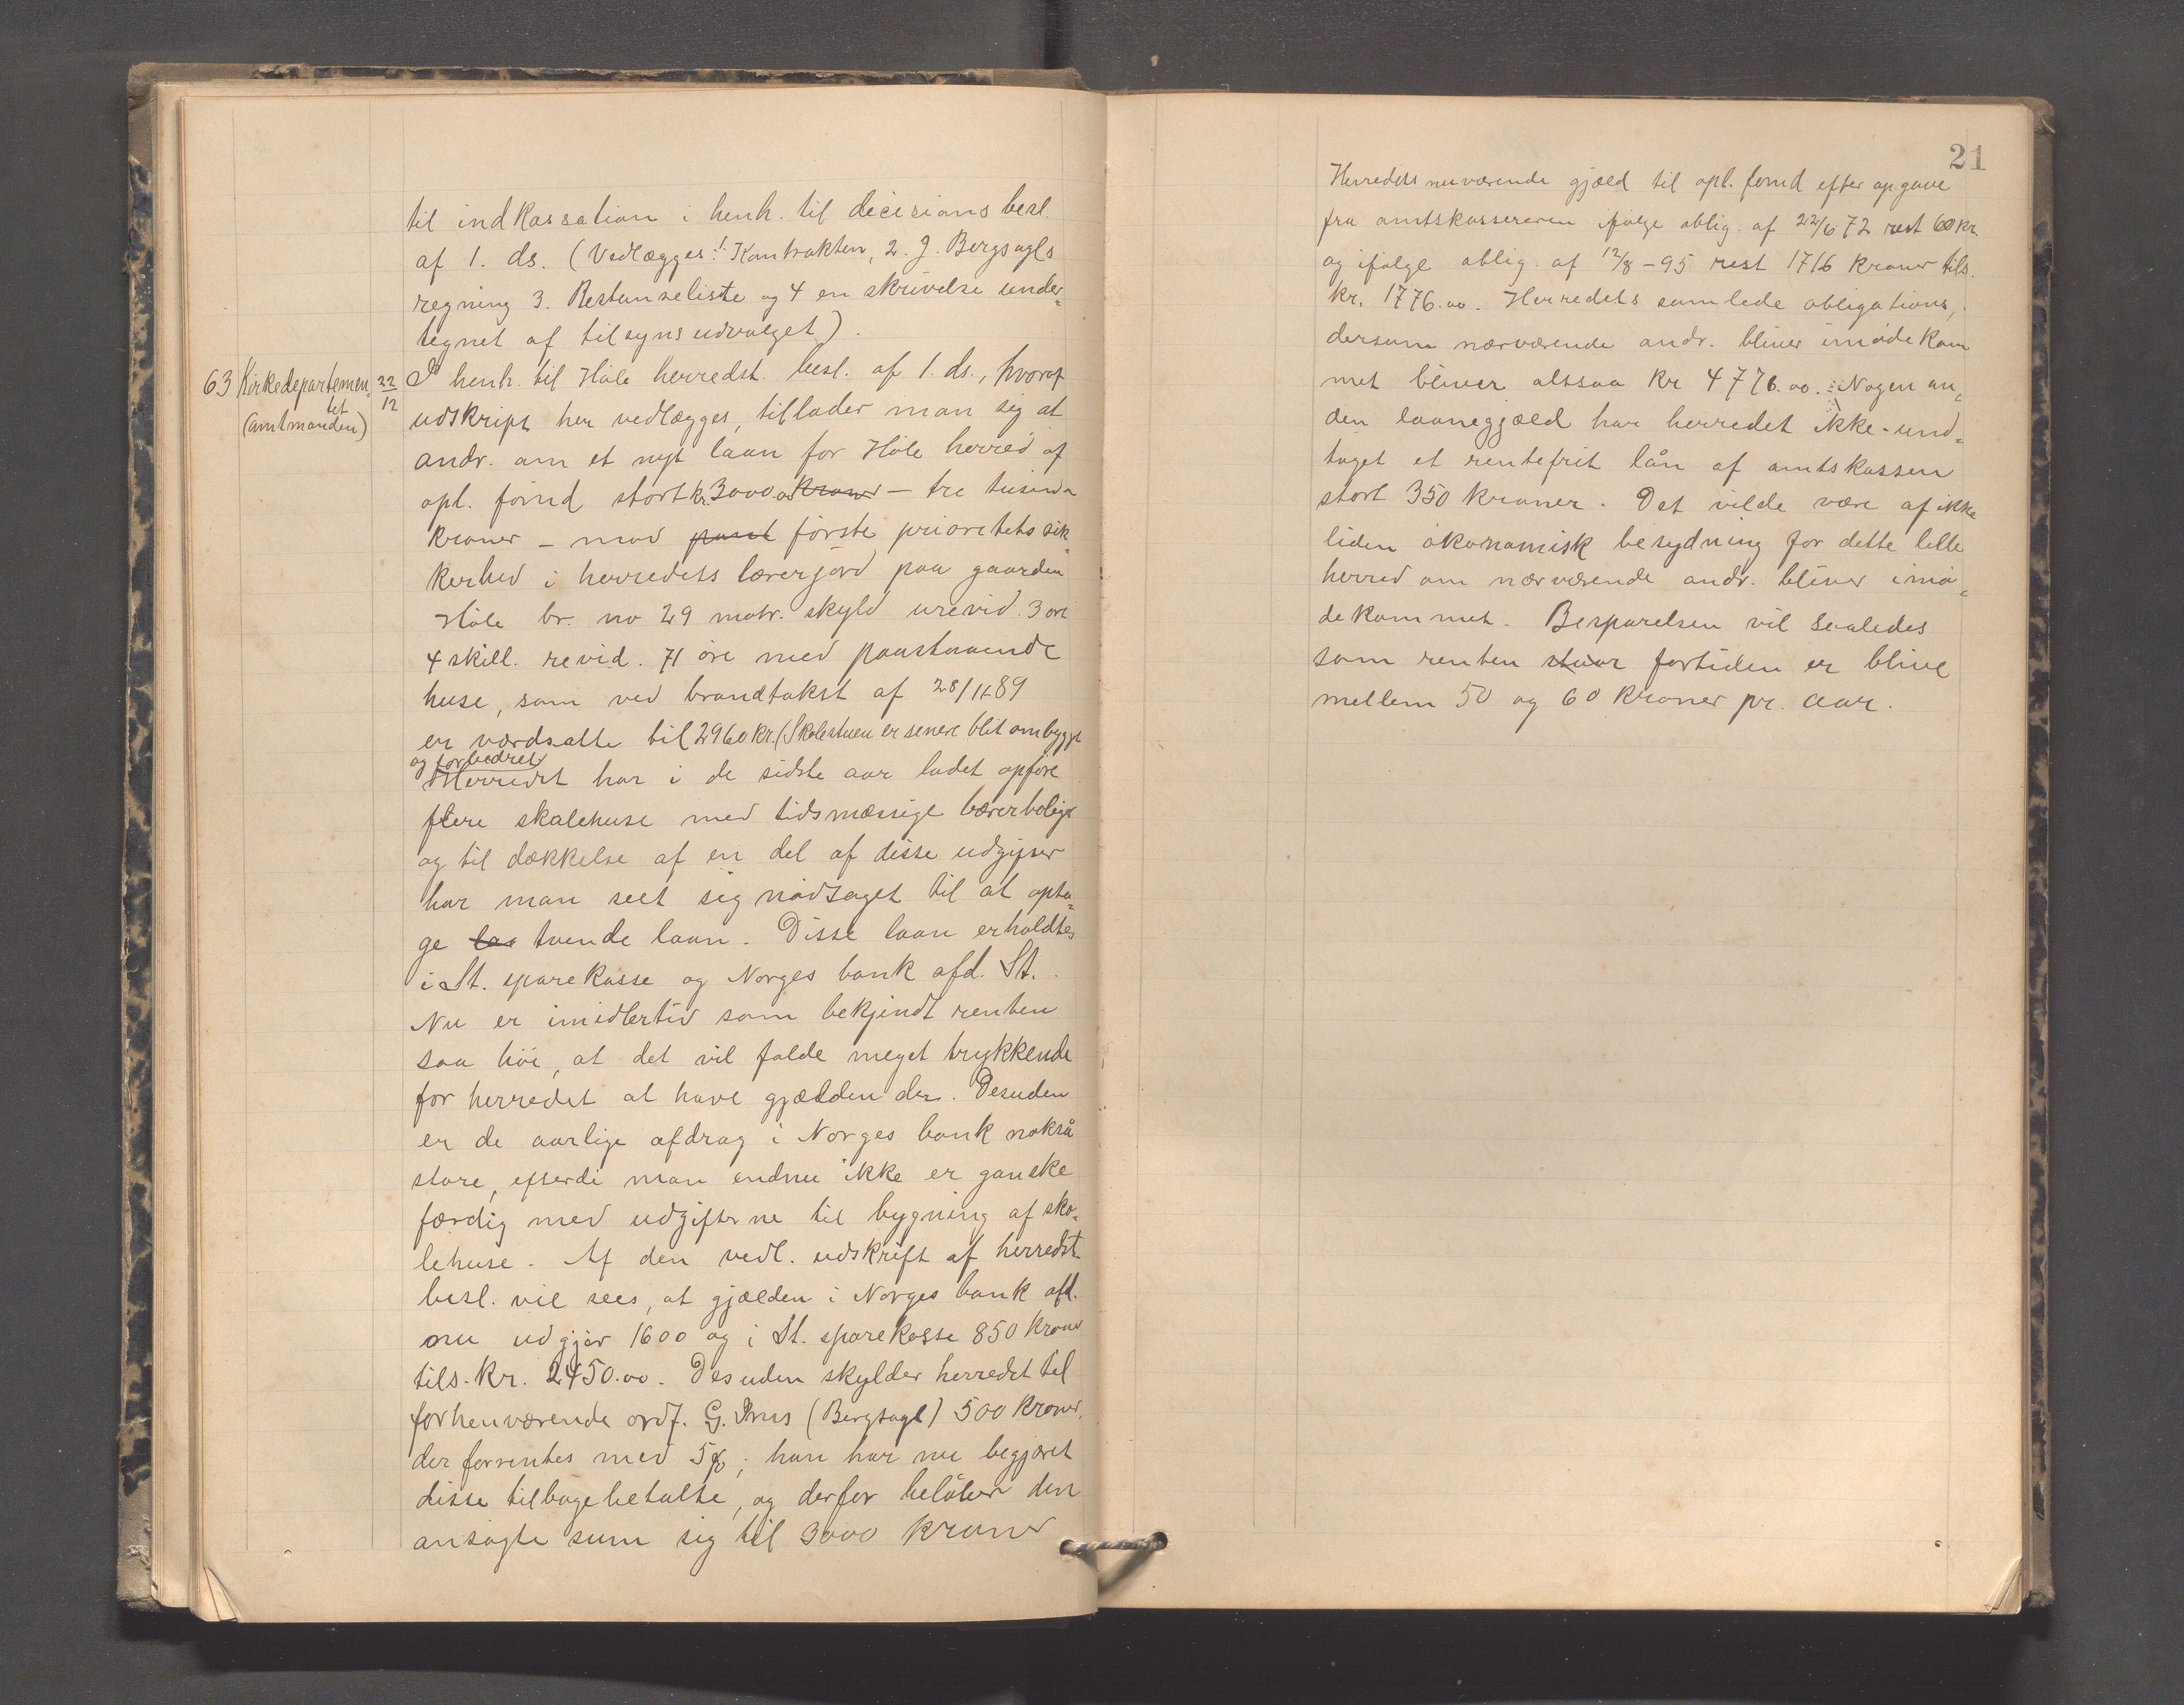 til indkassation i henh. til decisions besl.
af 1. ds. (Vedlægges: 1. Kontrakten, 2. J. Bergsagls
regning 3. Restanseliste og 4 en skrivelse under-
tegnet af tilsynsudvalget).
63 Kirkedepartemen-
tet
(amtmanden)
22/12
I henh. til Høle herredst. besl. af 1. ds., hvoraf
udskrift her vedlægges, tillader man sig at
andr. om et nyt laan for Høle herred af
opl. fond stort kr. 3000.00 kroner – tre tusinde
kroner – mod pant første prioritets sik-
kerhed i herredets lærerjord paa gaarden
Høle br. no 29 matr. skyld urevid. 3 ort
4 skill. revid. 71 øre med paastaaende
huse, som ved brandtakst af 28/11 89
er værdsatte til 2960 kr. (Skolestuen er senere blit ombygget
og forbedret)
Herredet har i de sidste aar ladet opføre
flere skolehuse med tidsmæssige lærerbolige
og til dækkelse af en del af disse udgifter
har man seet sig nødsaget til at opta-
ge laa tvende laan. Disse laan erholdtes
i St. sparekasse og Norges bank afd. St.
Nu er imidlertid som bekjendt renten
saa høi, at det vil falde meget trykkende
for herredet at have gjælden der. Desuden
er de aarlige afdrag i Norges bank nokså
store, efterdi man endnu ikke er ganske
færdig med udgifterne til bygning af sko-
lehuse. Af den vedl. udskrift af herredst.
besl. vil sees, at gjælden i Norges bank afd.
nu udgjør 1600 og i St. sparekasse 850 kroner
tils. kr. 2450.00. Desuden skylder herredet til
forhenværende ordf. G. Ims (Bergsagl) 500 kroner,
der forrentes med 5%; han har nu begjæret
disse tilbagebetalte, og derfor beløber den
ansøgte sum sig til 3000 kroner
21
Herredets nuværende gjæld til opl. fond efter opgave
fra amtskassereren ifølge oblig. af 22/6 72 rest 60 kr.
og ifølge oblig. af 12/8 – 95 rest 1716 kroner tils.
kr. 1776.00. Herredets samlede obligations,
dersom nærværende andr. bliver imødekom
met bliver altsaa kr 4776.00. Nogen an-
den laanegjæld har herredet ikke – und-
taget et rentefrit lån af amtskassen
stort 350 kroner. Det vilde være af ikke
liden økonomisk betydning for dette lille
herred om nærværende andr. bliver imø-
dekommet. Besparelsen vil saaledes
som renten staar fortiden er blive
mellem 50 og 60 kroner pr. aar.